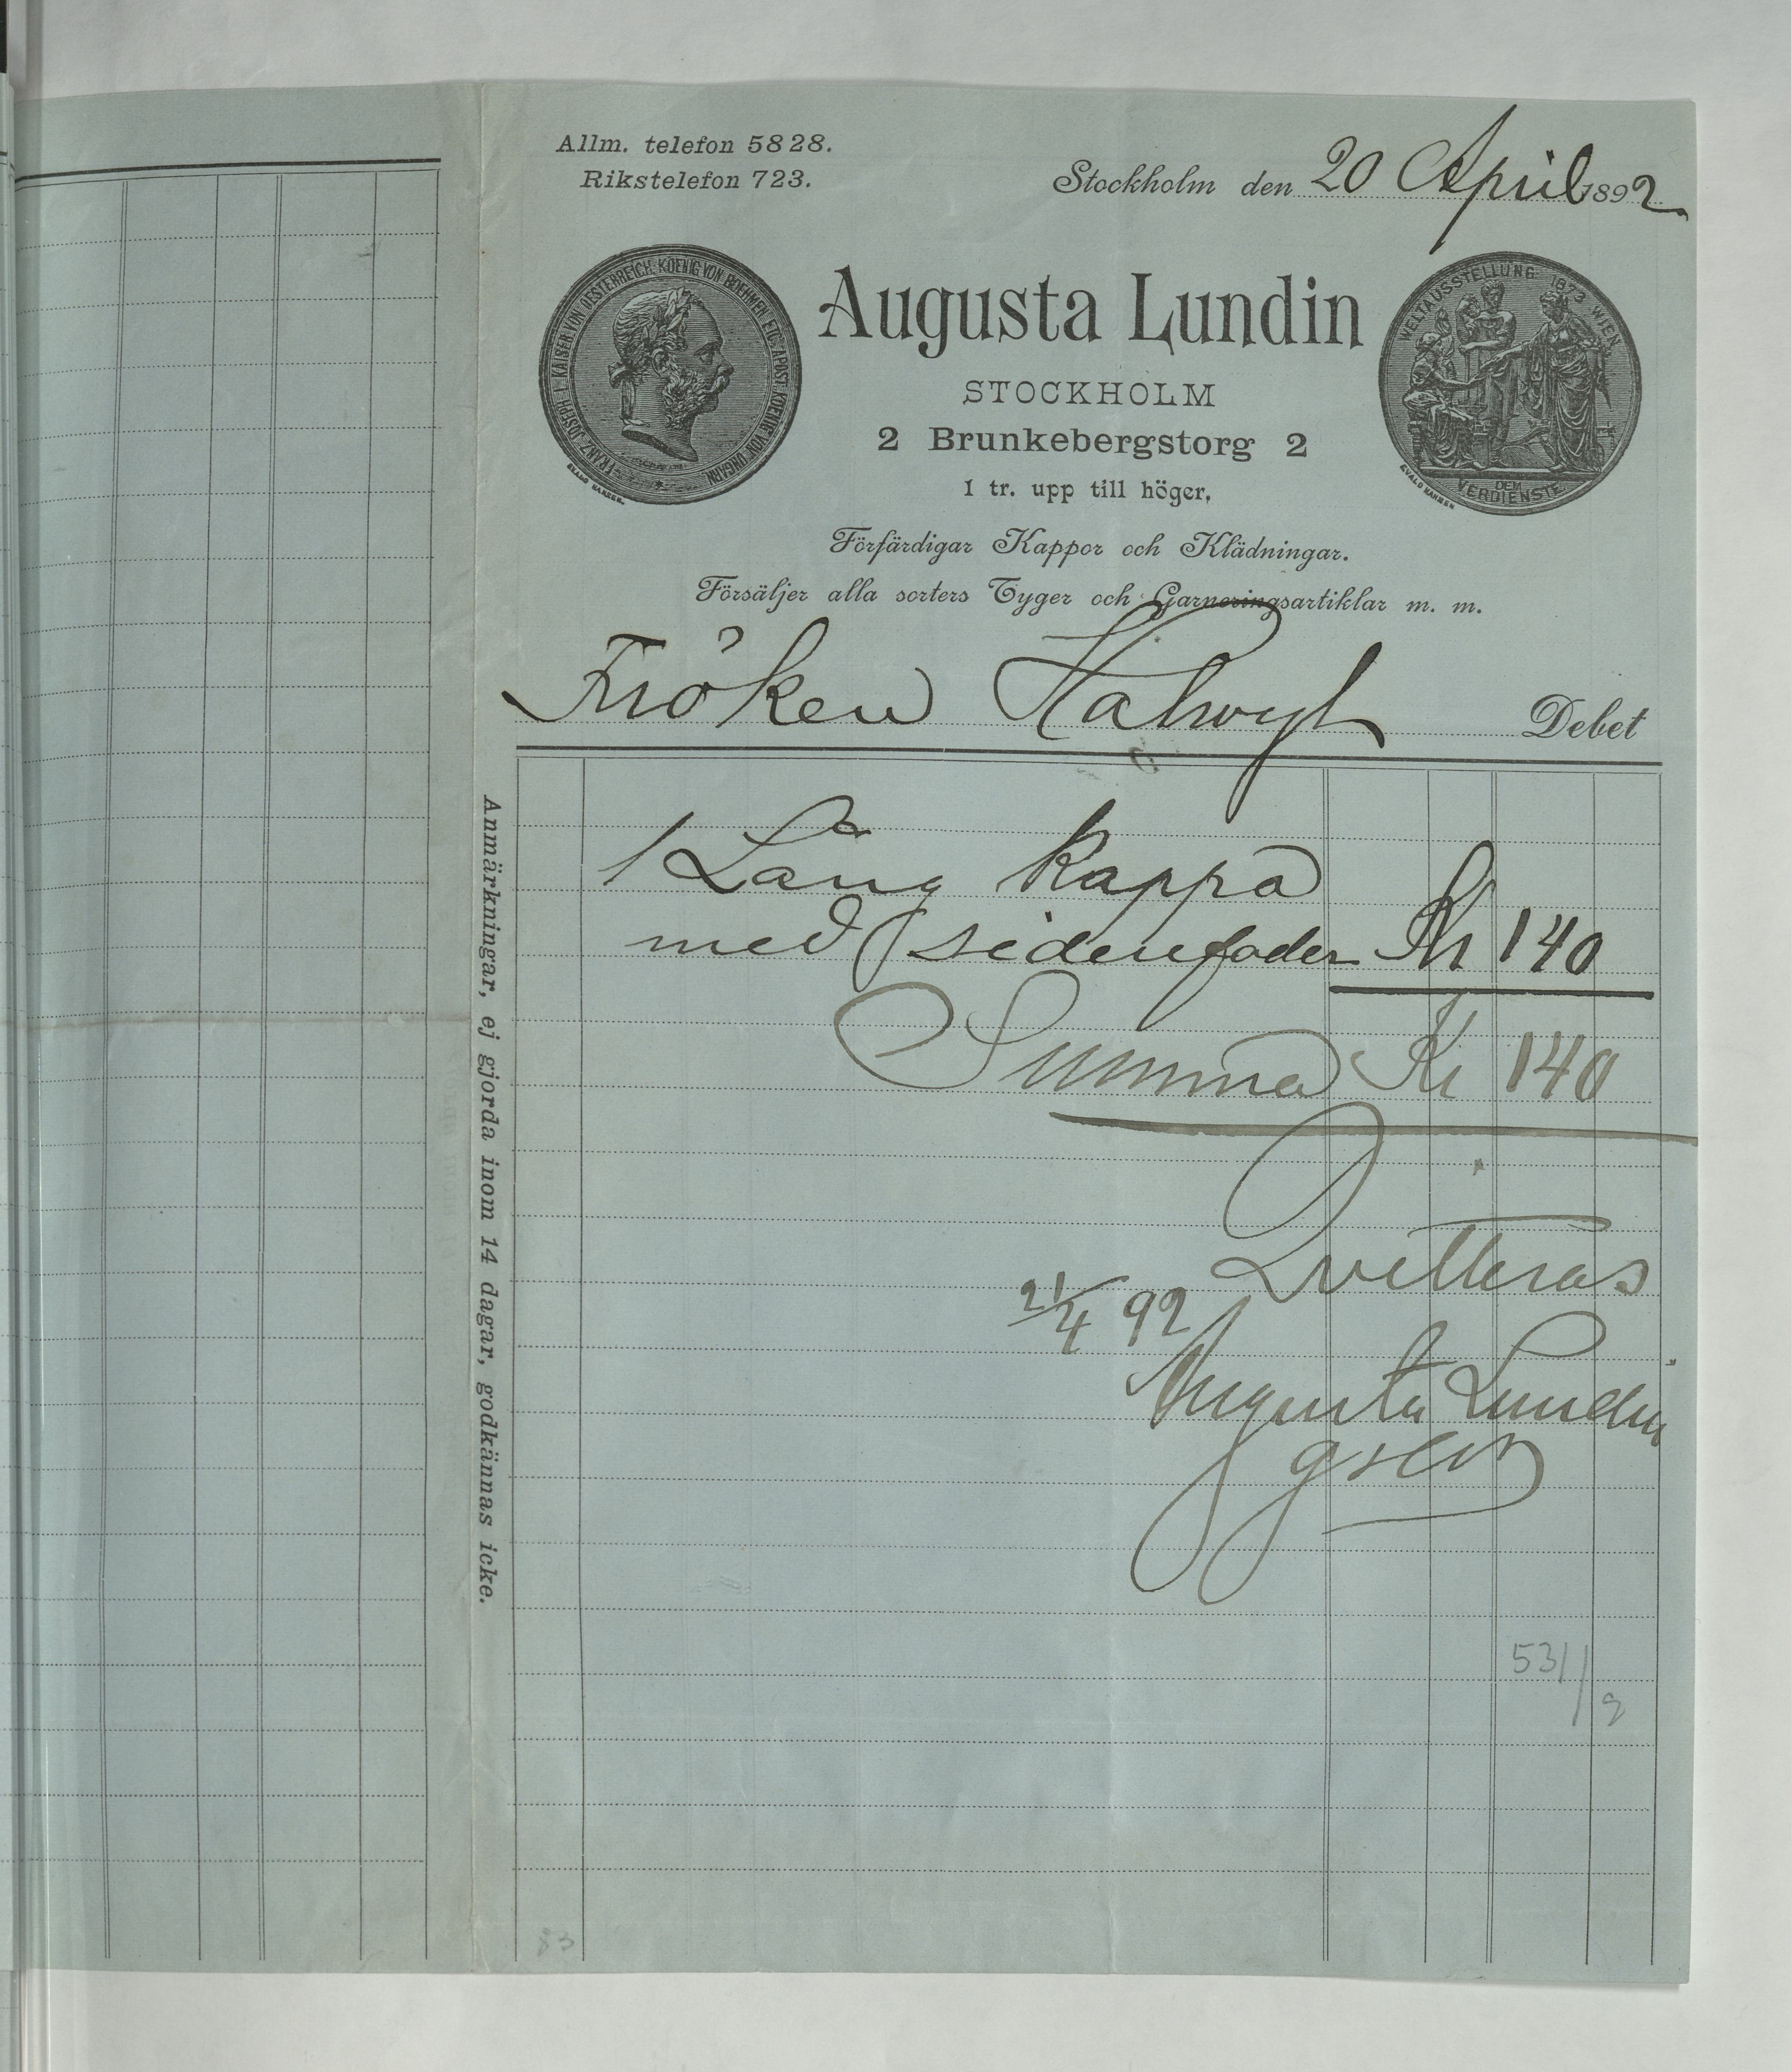 Allm. telefon 5828.
Rikstelefon 723.
Stockholm den 20 April 1892
FRANZ JOSEPH I. KAISER VON OESTERREICH, KOENIG VON BOEHMEN ETC. APOST. KOENIG VON UNGARN
WELTAUSSTELLUNG 1873 WIEN
DEM
VERDIENSTE
Augusta Lundin
STOCKHOLM
2 Brunkebergstorg 2
1 tr. upp till höger.
Förfärdigar Kappor och Klädningar.
Försäljer alla sorters Tyger och Garneringsartiklar m. m.
Fröken Halwyl Debet
1 Lång kappa
med sidenfoder Kr 140
Summa Kr 140
Qvitteras
21/4 92
Augusta Lundin
Anmärkningar, ej gjorda inom 14 dagar, godkännas icke.
53